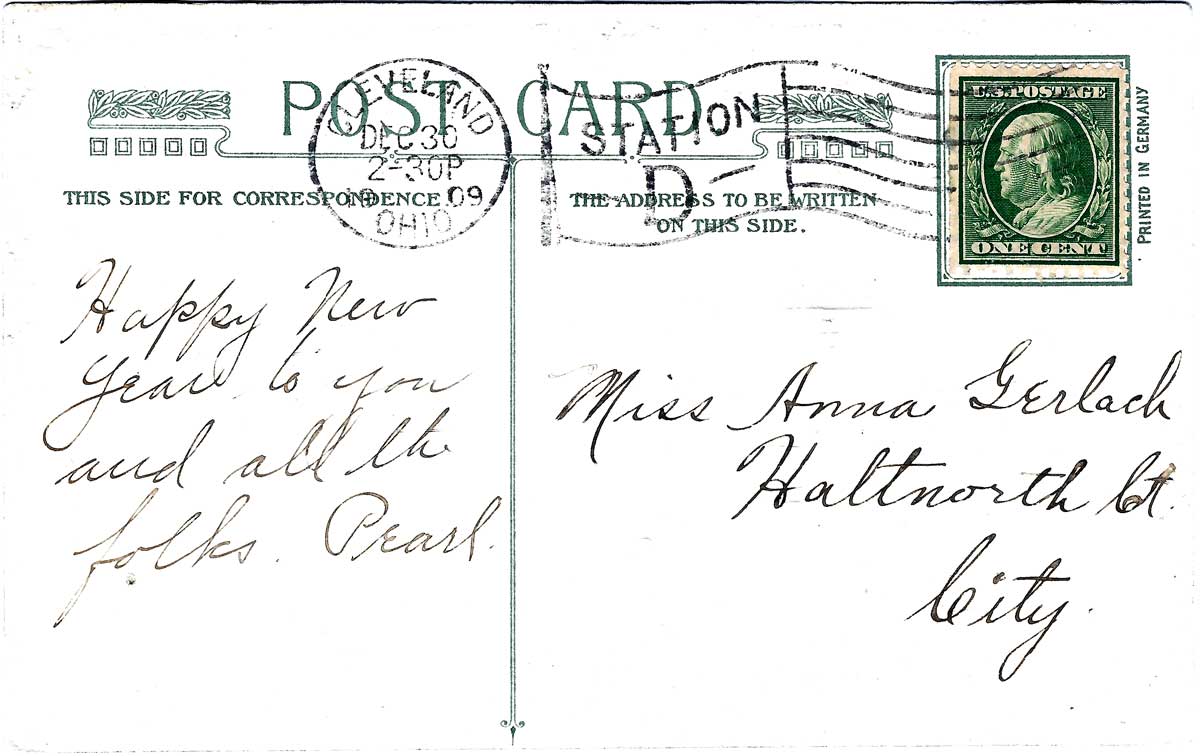 POST CARD
CLEVELAND
DEC 30
2-30P
1909
OHIO
STATION
D
U.S. POSTAGE
ONE CENT
PRINTED IN GERMANY
THIS SIDE FOR CORRESPONDENCE.
THE ADDRESS TO BE WRITTEN
ON THIS SIDE.
Happy New
Year to you
and all the
folks. Pearl.
Miss Anna Gerlach
Haltnorth Ct.
City.